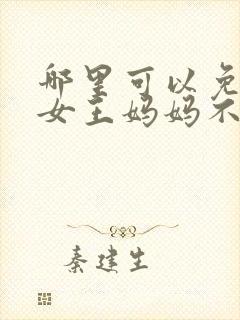 哪里可以免
女王妈妈不
秦建生